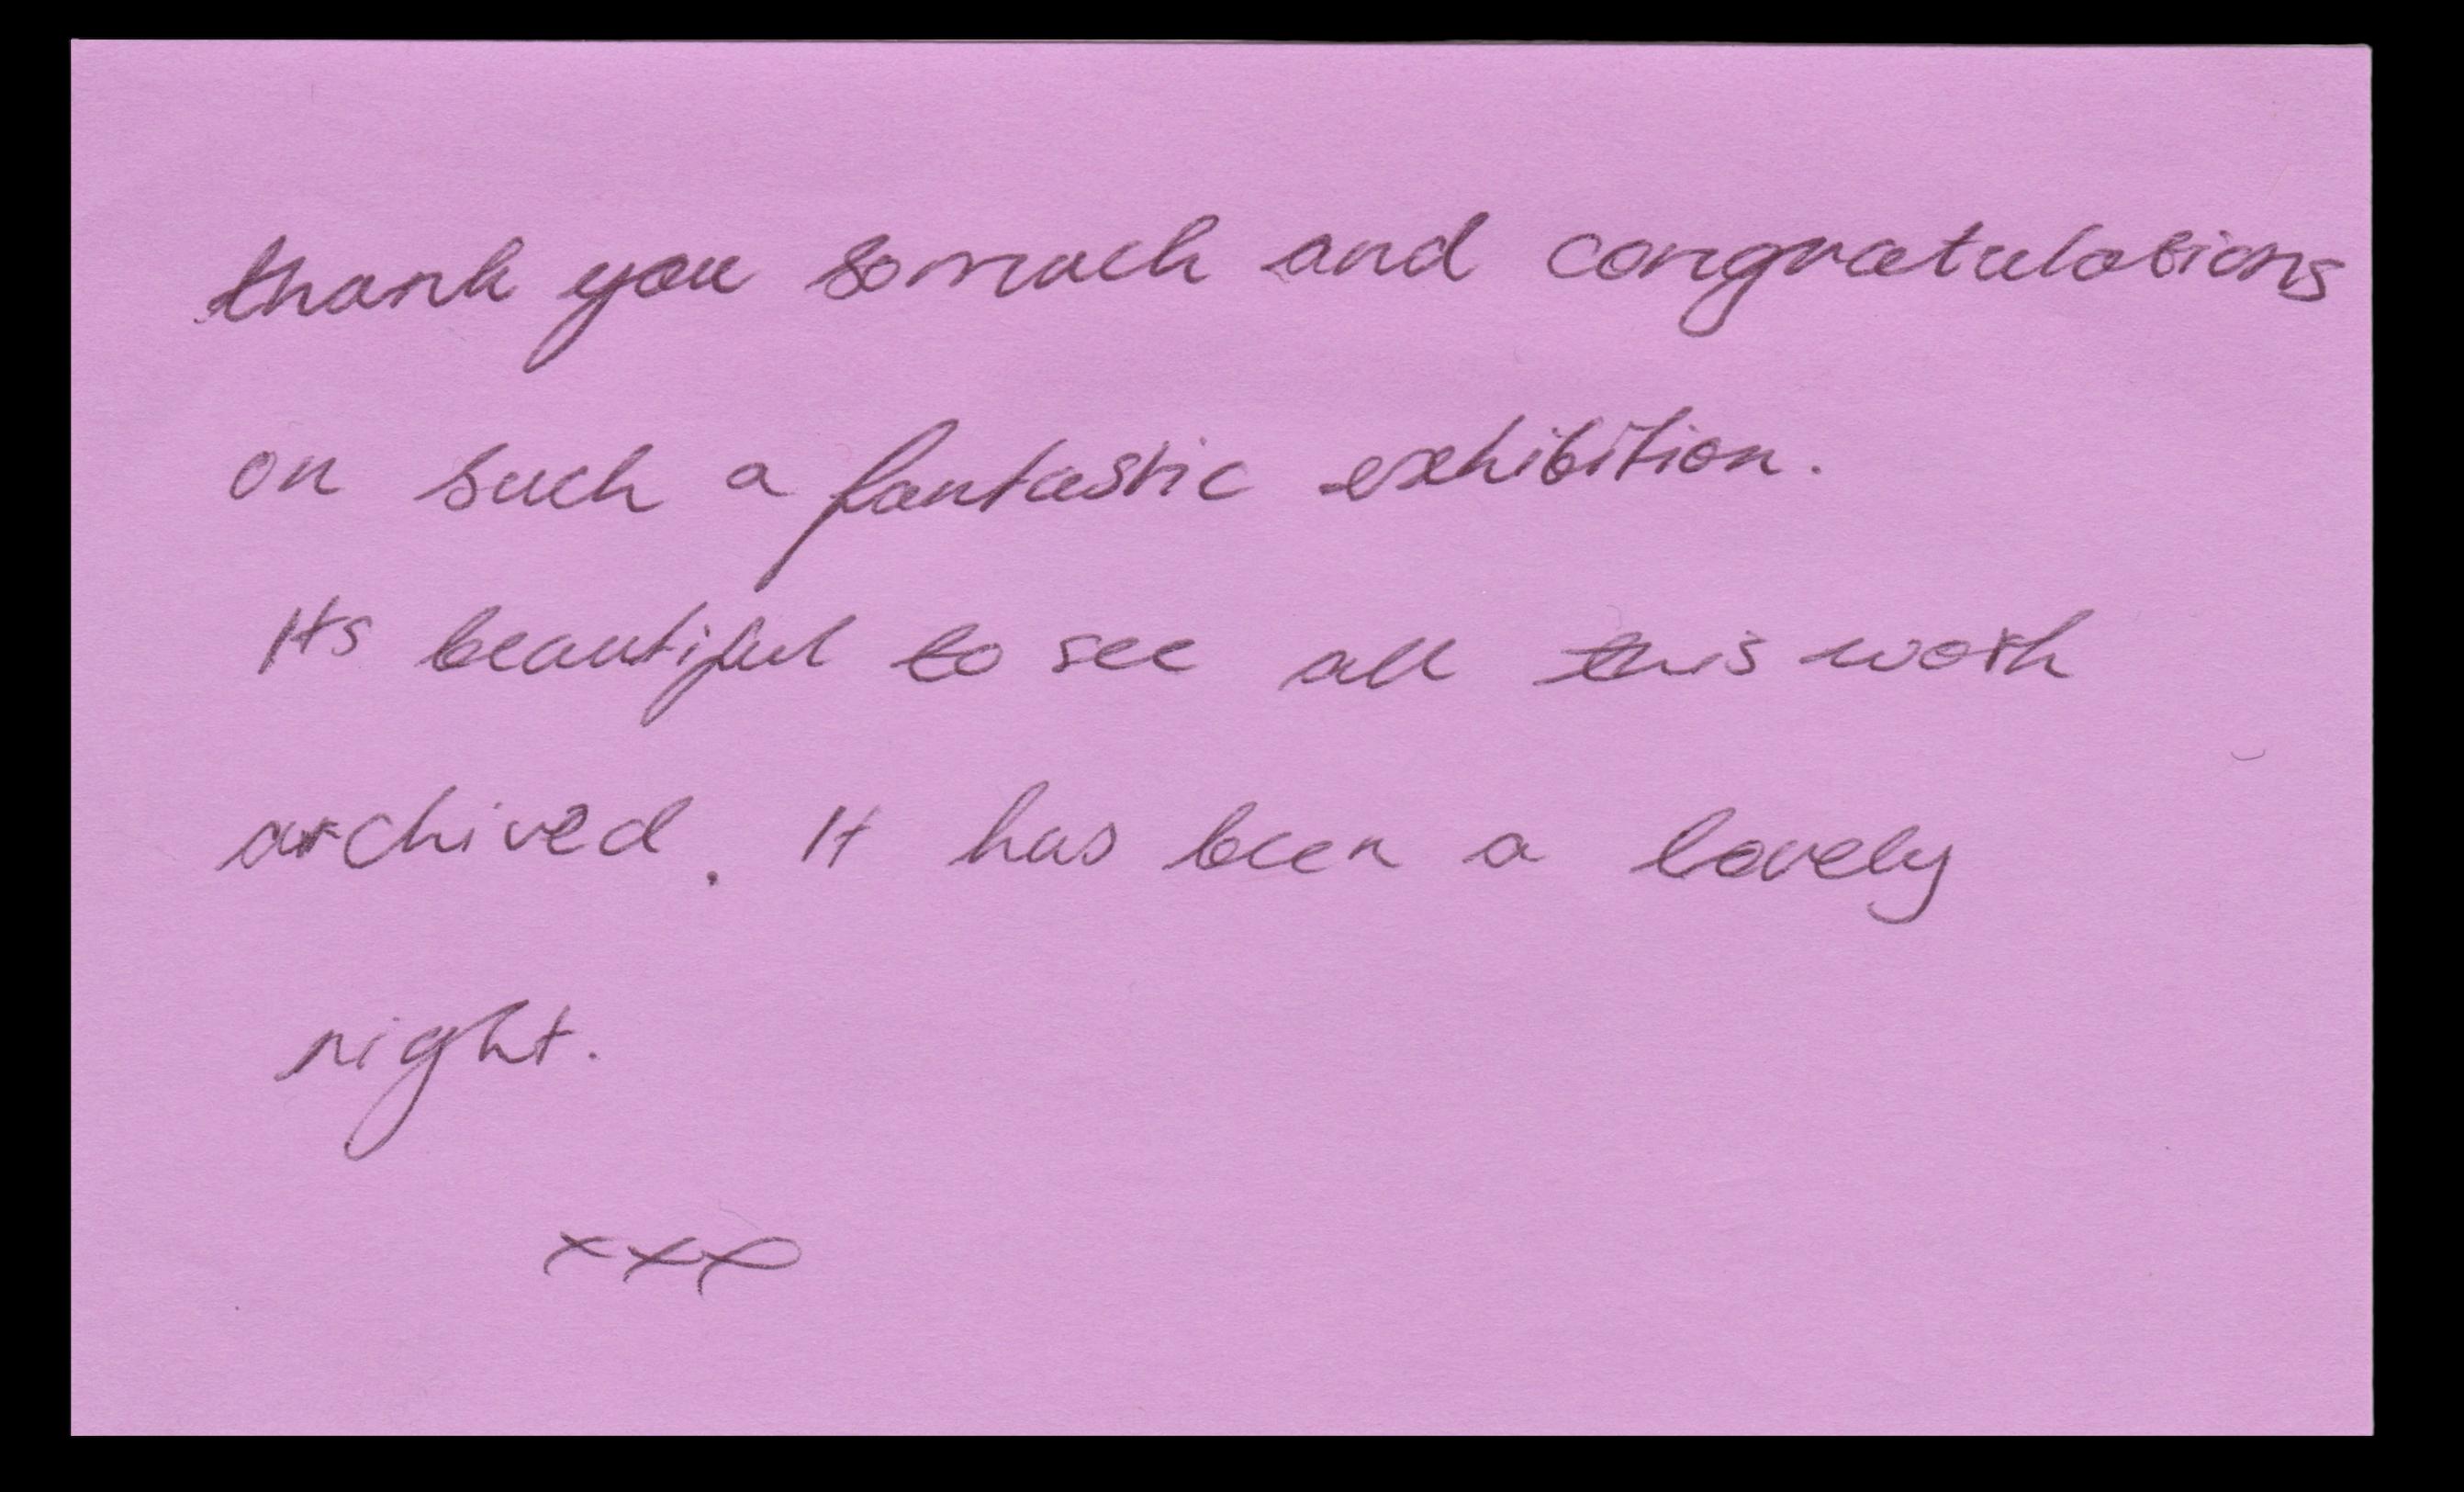 thank you so much and congratulations
on such a fantastic exhibition.
Its beautiful to see all this work
archived. It has been a lovely
night.
xxx